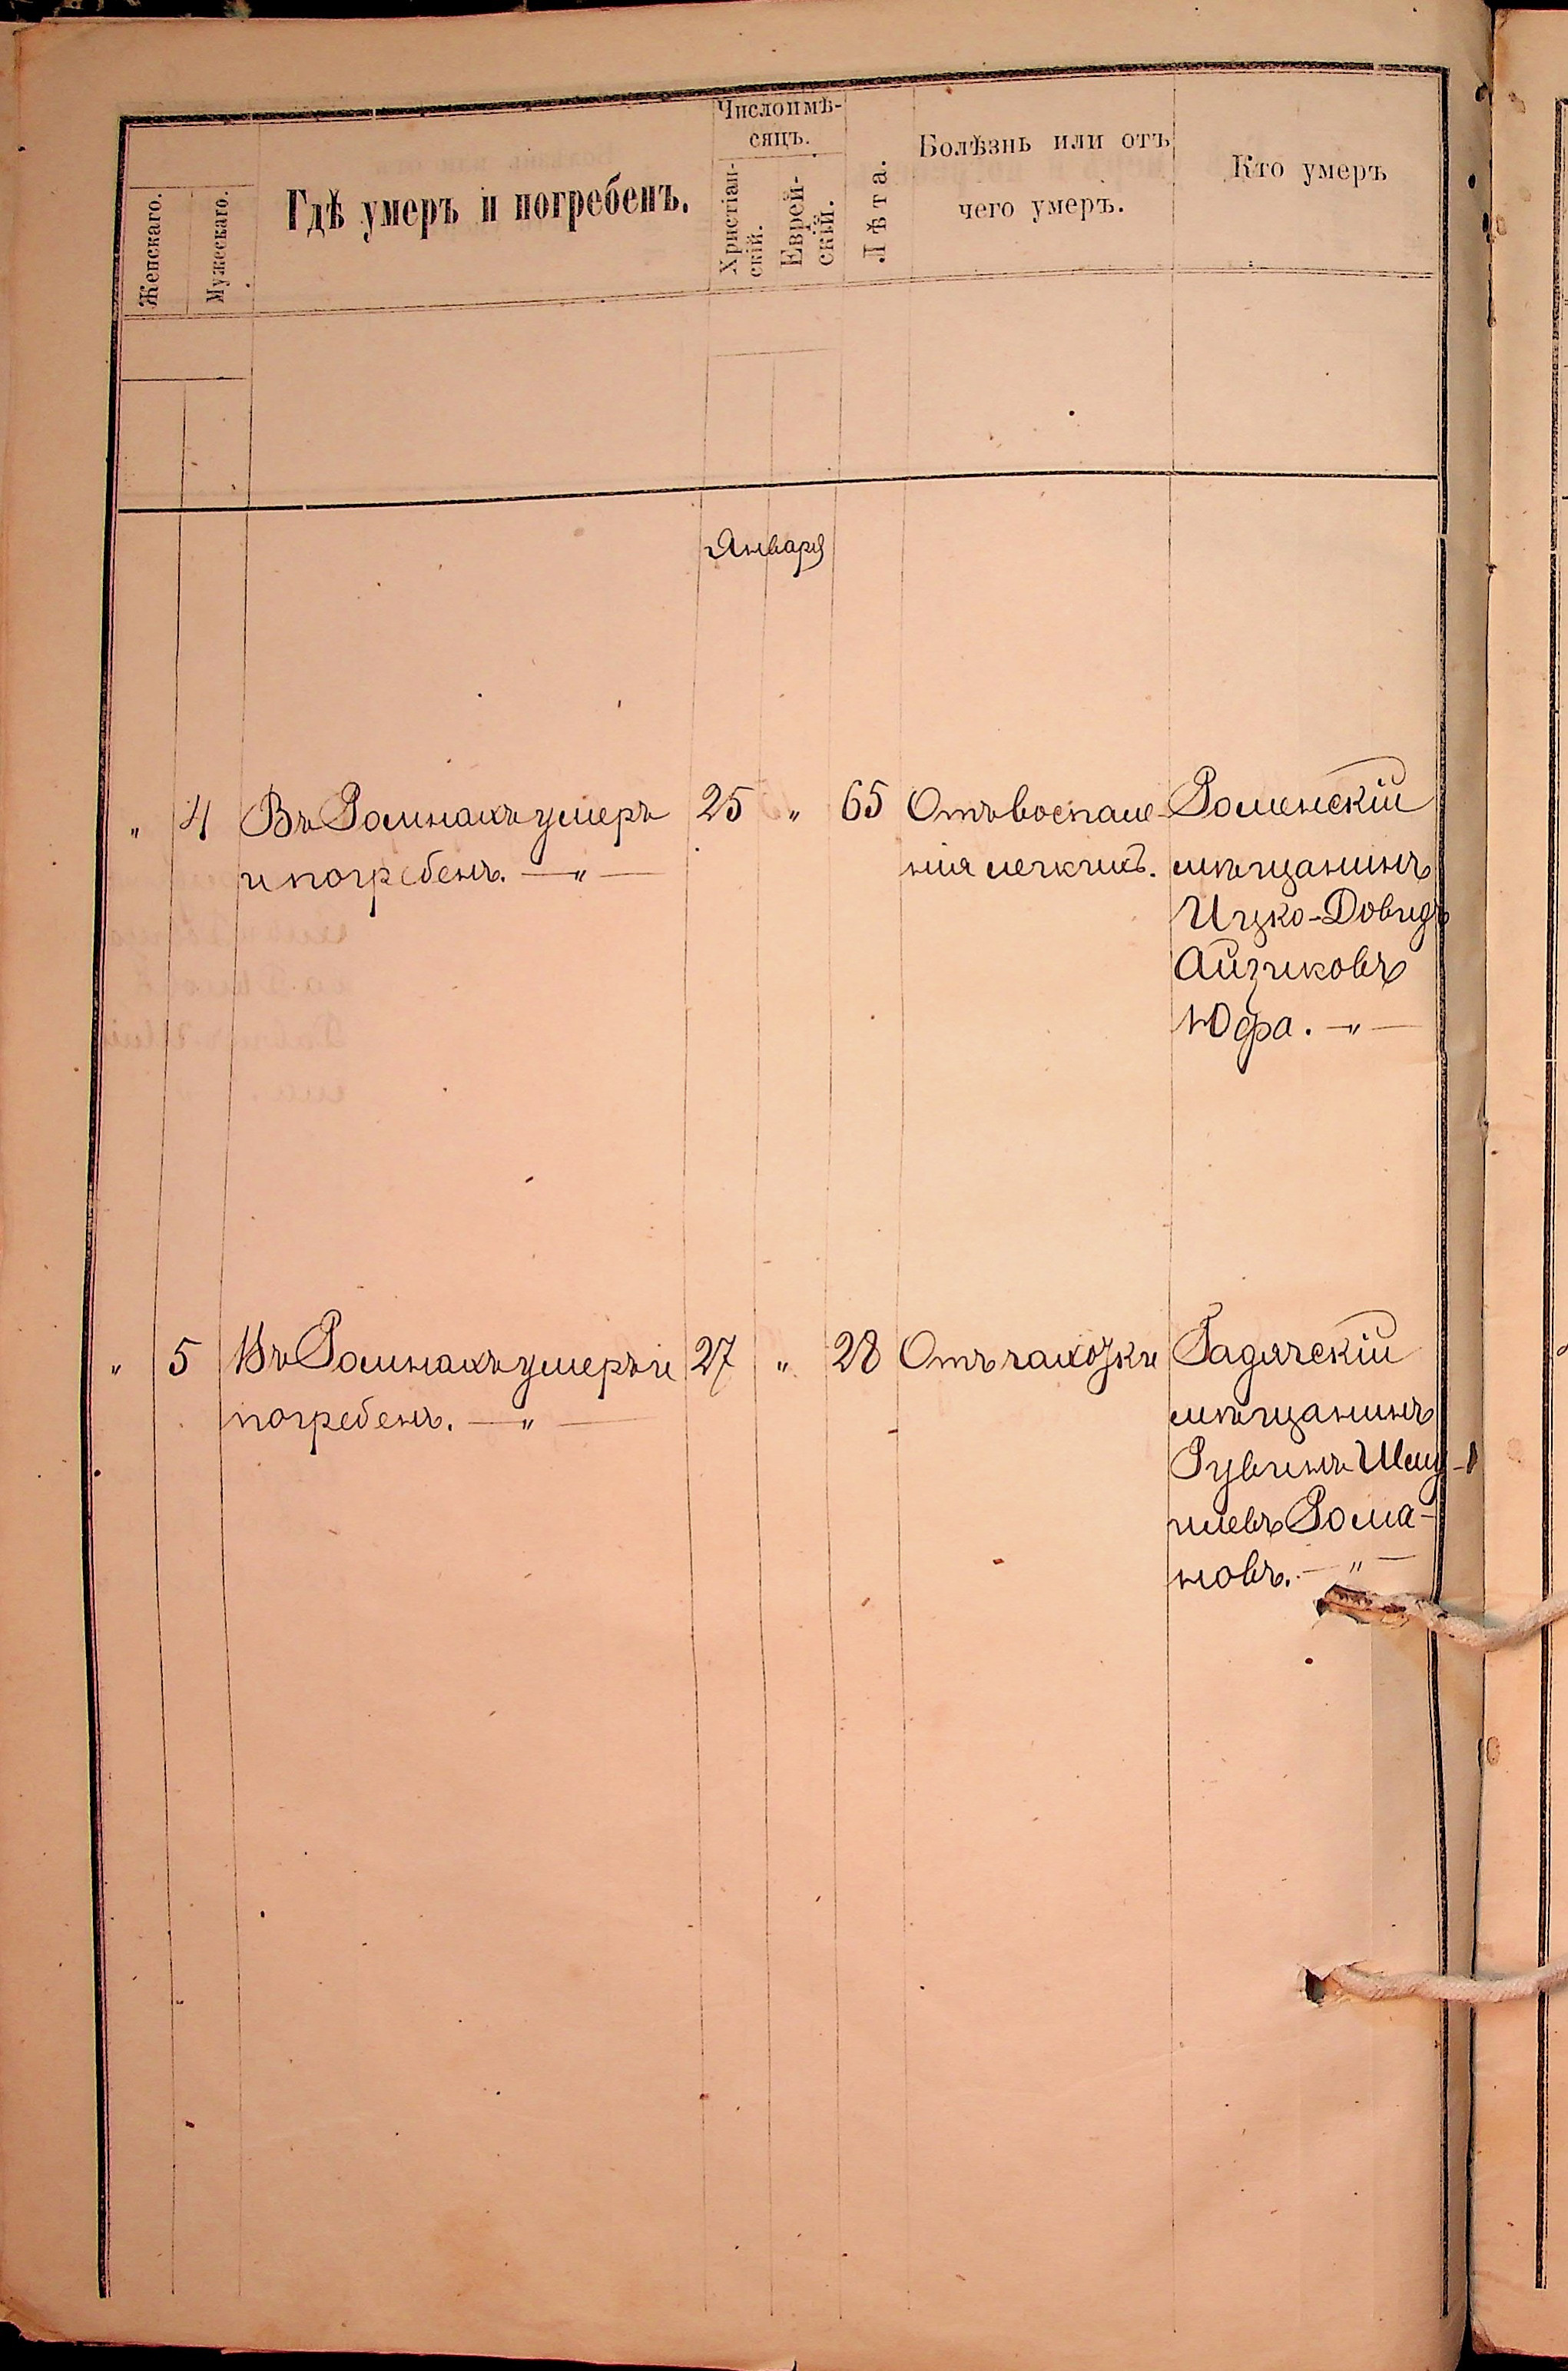 Женскаго.
Мужескаго.
Гдѣ умеръ и погребенъ.
Число и мѣ-
сяцъ.
Христіан-
скій.
Еврей-
скій.
Лѣта.
Болѣзнь или отъ
чего умеръ.
Кто умеръ
Января
" 4 Въ Ромнахъ умеръ 25 " 65 Отъ воспале- Роменскій
и погребенъ. — " — нія легкихъ. мѣщанинъ
Ицко-Довидъ
Айзиковъ
Юфа. — " —
" 5 Въ Ромнахъ умеръ и 27 " 28 Отъ чахотки Гадячскій
погребенъ. — " — мѣщанинъ
Рувинъ Шму-
илевъ Рома-
новъ. — " —